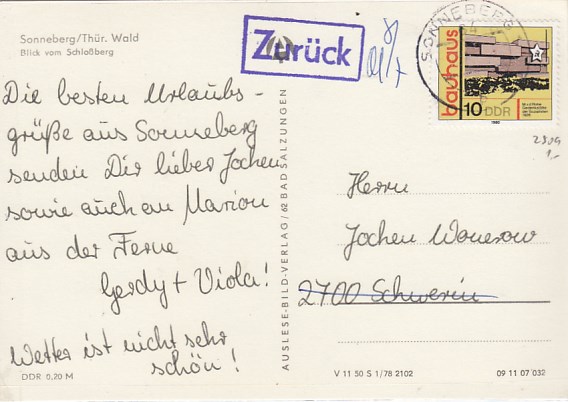 Sonneberg/Thür. Wald
Blick vom Schloßberg
Zurück
SONNEBERG
bauhaus
10 DDR
1980
2509
1,-
Die besten Urlaubs-
grüße aus Sonneberg
senden Dir lieber Jochen
sowie auch an Marion
aus der Ferne
Gerdy + Viola!
Wetter ist nicht sehr
schön!
DDR 0,20 M
AUSLESE-BILD-VERLAG/62 BAD SALZUNGEN
Herrn
Jochen Wanerow
2700 Schwerin
V 11 50 S 1/78 2102
09 11 07 032